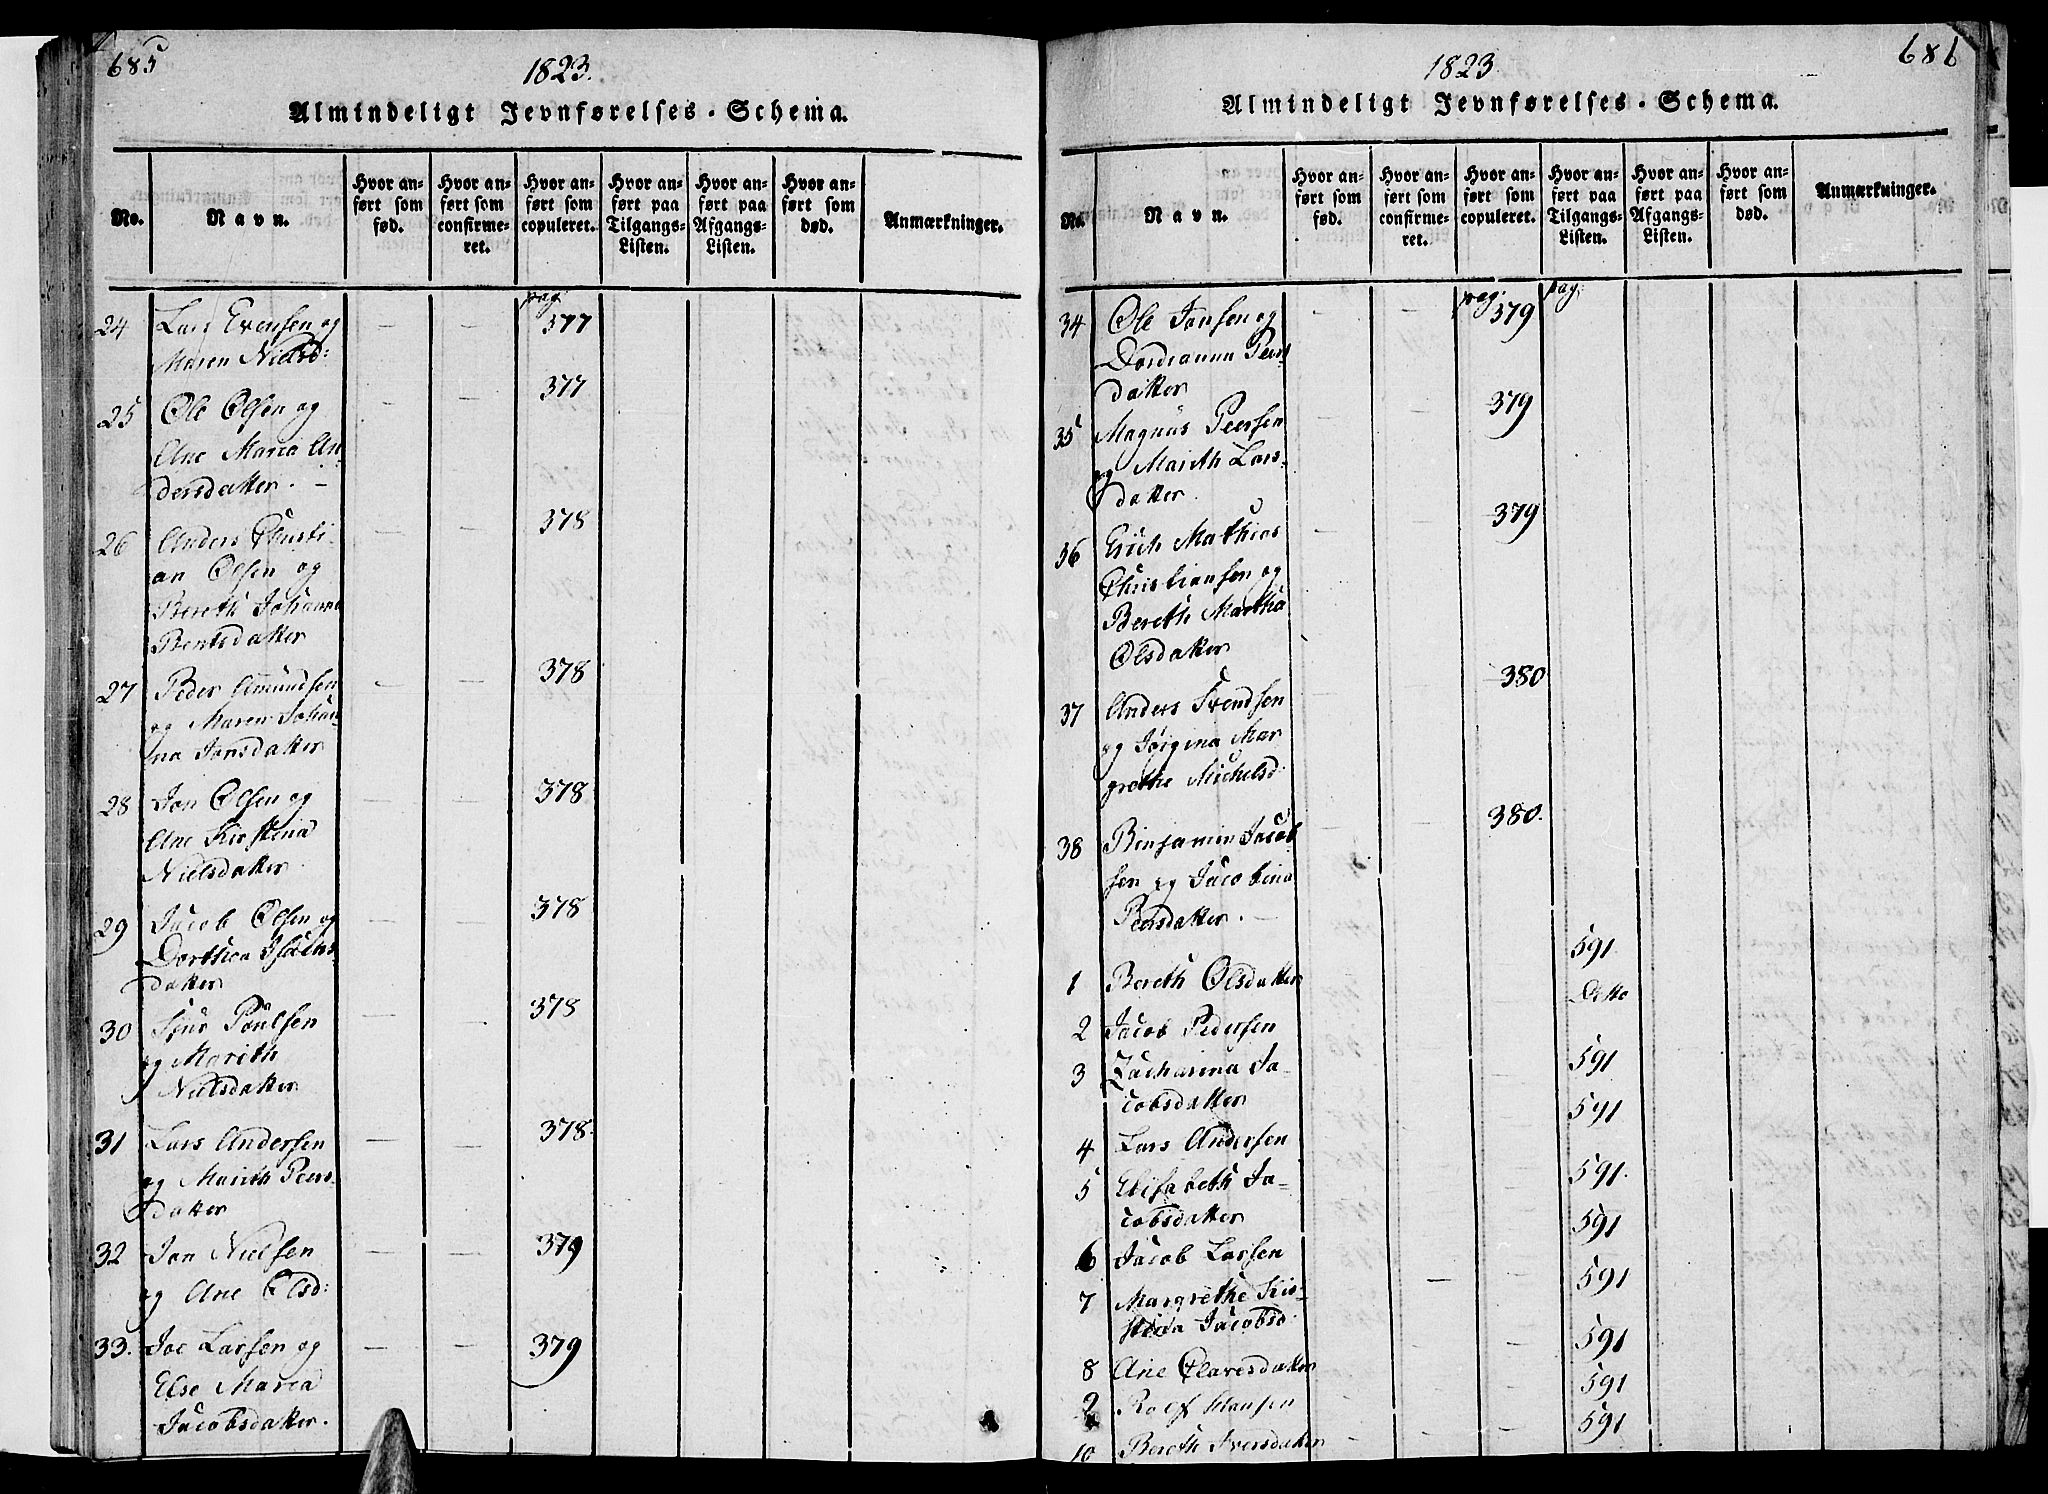 685
1823.
Almindeligt Jevnførelses-Schema.
No.
Navn.
Hvor anført som fød.
Hvor anført som confirmeret.
Hvor anført som copuleret.
Hvor anført paa Tilgangs-Listen.
Hvor anført paa Afgangs-Listen.
Hvor anført som død.
Anmærkninger.
pag:
24 Lars Evensen og — — 377
Maren Nielsd:
25 Ole Olsen og — — 377
Ane Maria An-
dersdatter. —
26 Anders Christi- — — 378
an Olsen og
Bereth Johanna
Bentsdatter
27 Peder Amundsen — — 378
og Maren Johan-
na Jonsdatter
28 Jon Olsen og — — 378
Ane Kirstina
Nielsdatter
29 Jacob Olsen og — — 378
Dorthea Isachs-
datter
30 Sjur Poulsen — — 378
og Marith
Nielsdatter
31 Lars Andersen — — 378.
og Marith Peers-
datter
32 Jon Nielsen — — 379
og Ane Olsd:
33. Joe Larsen og — — 379
Else Maria
Jacobsdatter.
686
1823
Almindeligt Jevnførelses-Schema.
No.
Navn.
Hvor anført som fød.
Hvor anført som confirmeret.
Hvor anført som copuleret.
Hvor anført paa Tilgangs-Listen.
Hvor anført paa Afgangs-Listen.
Hvor anført som død.
Anmærkninger.
pag: pag:
34 Ole Jonsen og 379
Dordeanna Peers
datter
35 Magnus Peersen — — 379
og Marith Lars-
datter.
36 Erich Mathias — — 379
Christiansen og
Bereth Martha
Olsdatter
37 Anders Svendsen — — 380
og Jørgina Mar
grethe Michelsd:
38 Binjamin Jacob — — 380.
sen og Jacobina
Peersdatter. —
1 Bereth Olsdatter 591
2 Jacob Pedersen Ditto
3 Zacharina Ja- 591
cobsdatter
4 Lars Andersen 591
5 Elisabeth Ja- 591.
cobsdatter
6 Jacob Larsen 591
7 Margrethe Kir- — — 591
stina Jacobsd:
8 Ane Clavesdatter 591
9 Rolf Hansen 591
10 Bereth Iversdatter — — 591